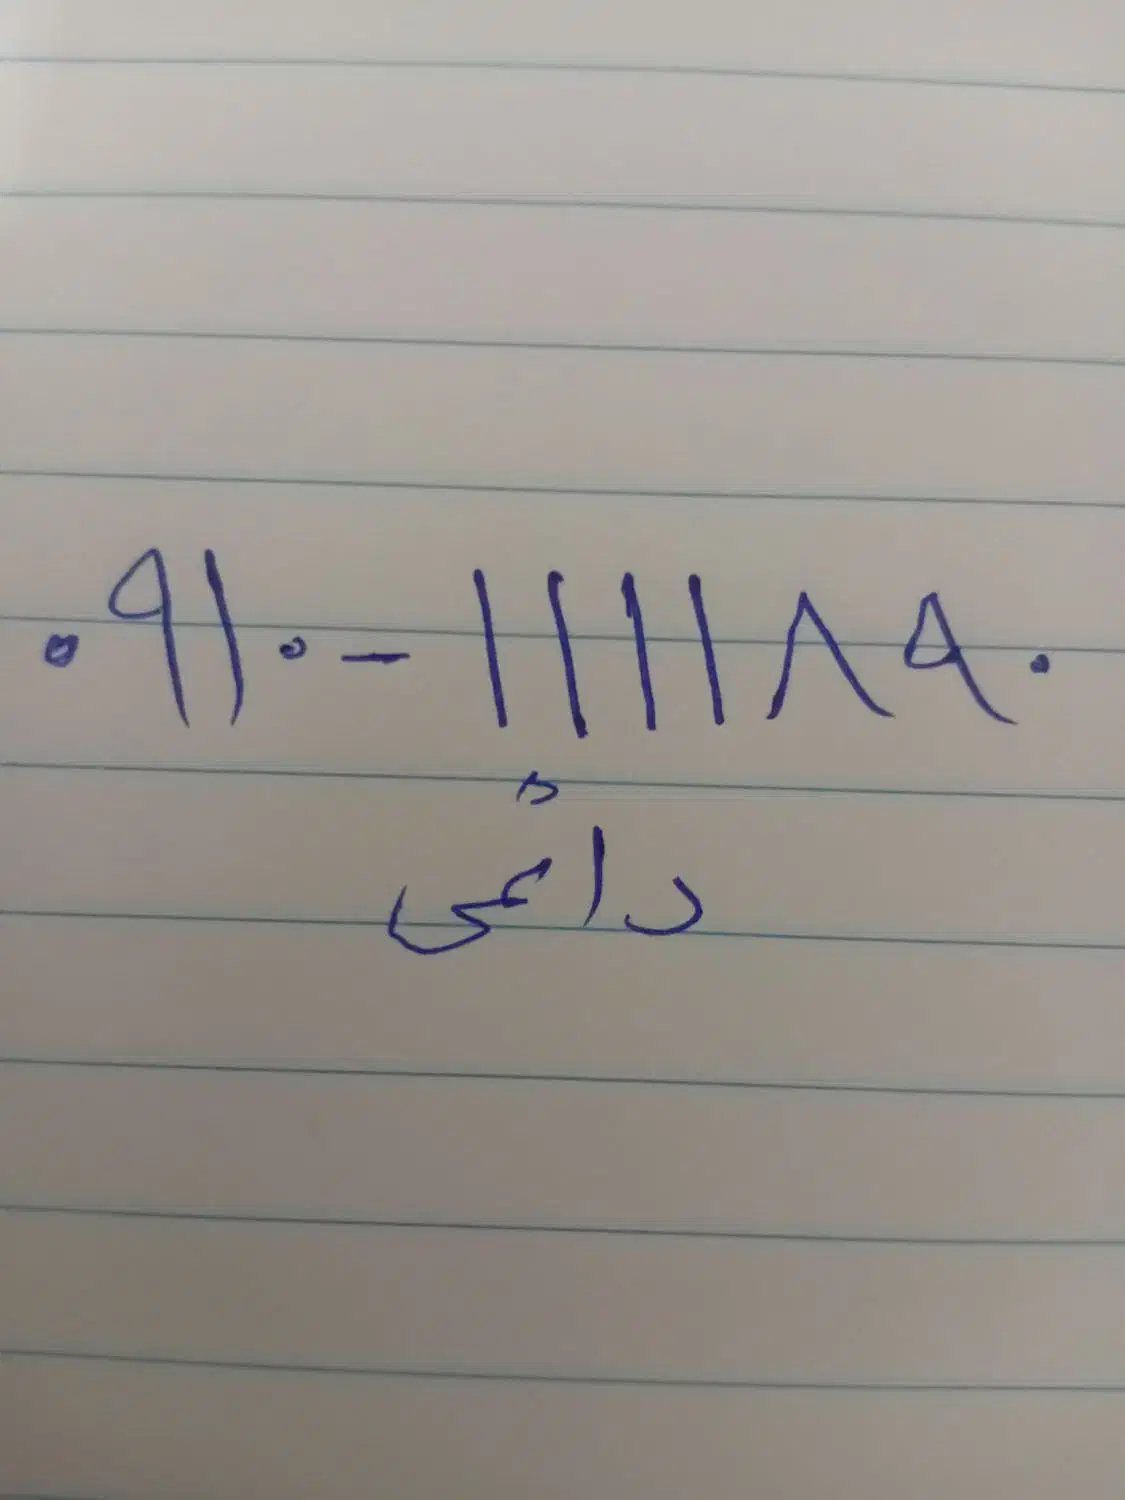 ۰۹۱۰-۱۱۱۱۸۹۰
دائمی